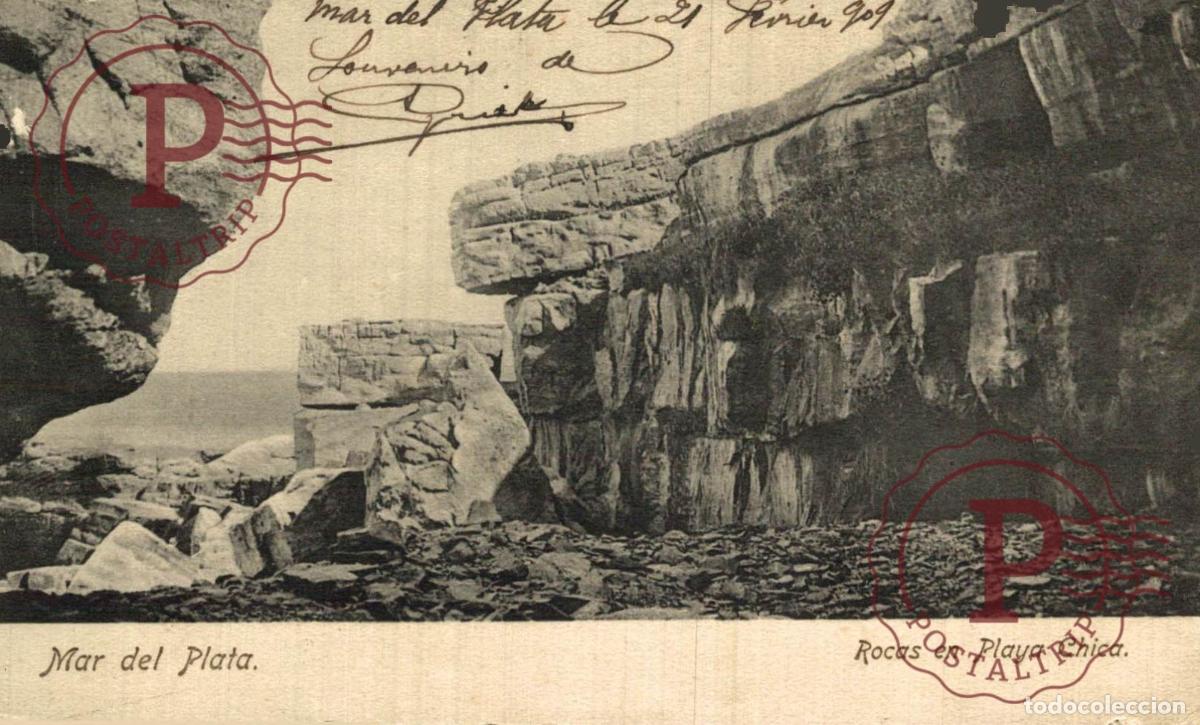 Mar del Plata le 21 Février 909
Souvenirs de
P
POSTALTRIP
Mar del Plata.
Rocas en Playa Chica.
P
POSTALTRIP
todocoleccion